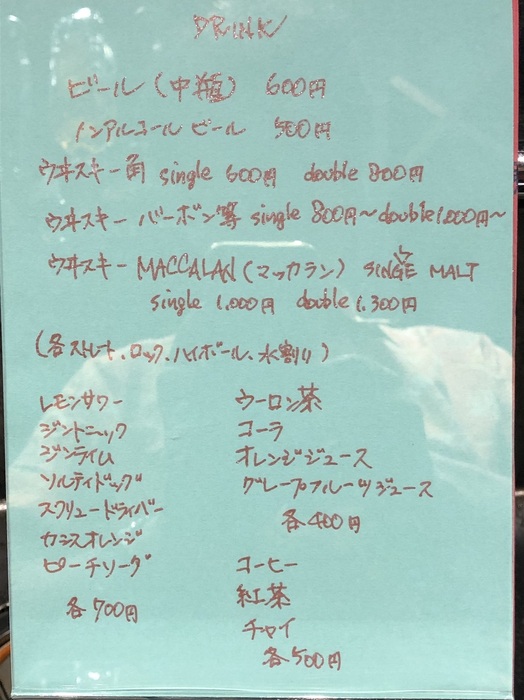 DRINK
ビール(中瓶) 600円
ノンアルコール ビール 500円
ウヰスキー角 single 600円 double 800円
ウヰスキー バーボン等 single 800円〜double 1,000円〜
ウヰスキー MACCALAN(マッカラン) SINGLE MALT
single 1,000円 double 1,300円
(各ストレート、ロック、ハイボール、水割り)
レモンサワー
ジントニック
ジンライム
ソルティドッグ
スクリュードライバー
カシスオレンジ
ピーチソーダ
各700円
ウーロン茶
コーラ
オレンジジュース
グレープフルーツジュース
各400円
コーヒー
紅茶
チャイ
各500円